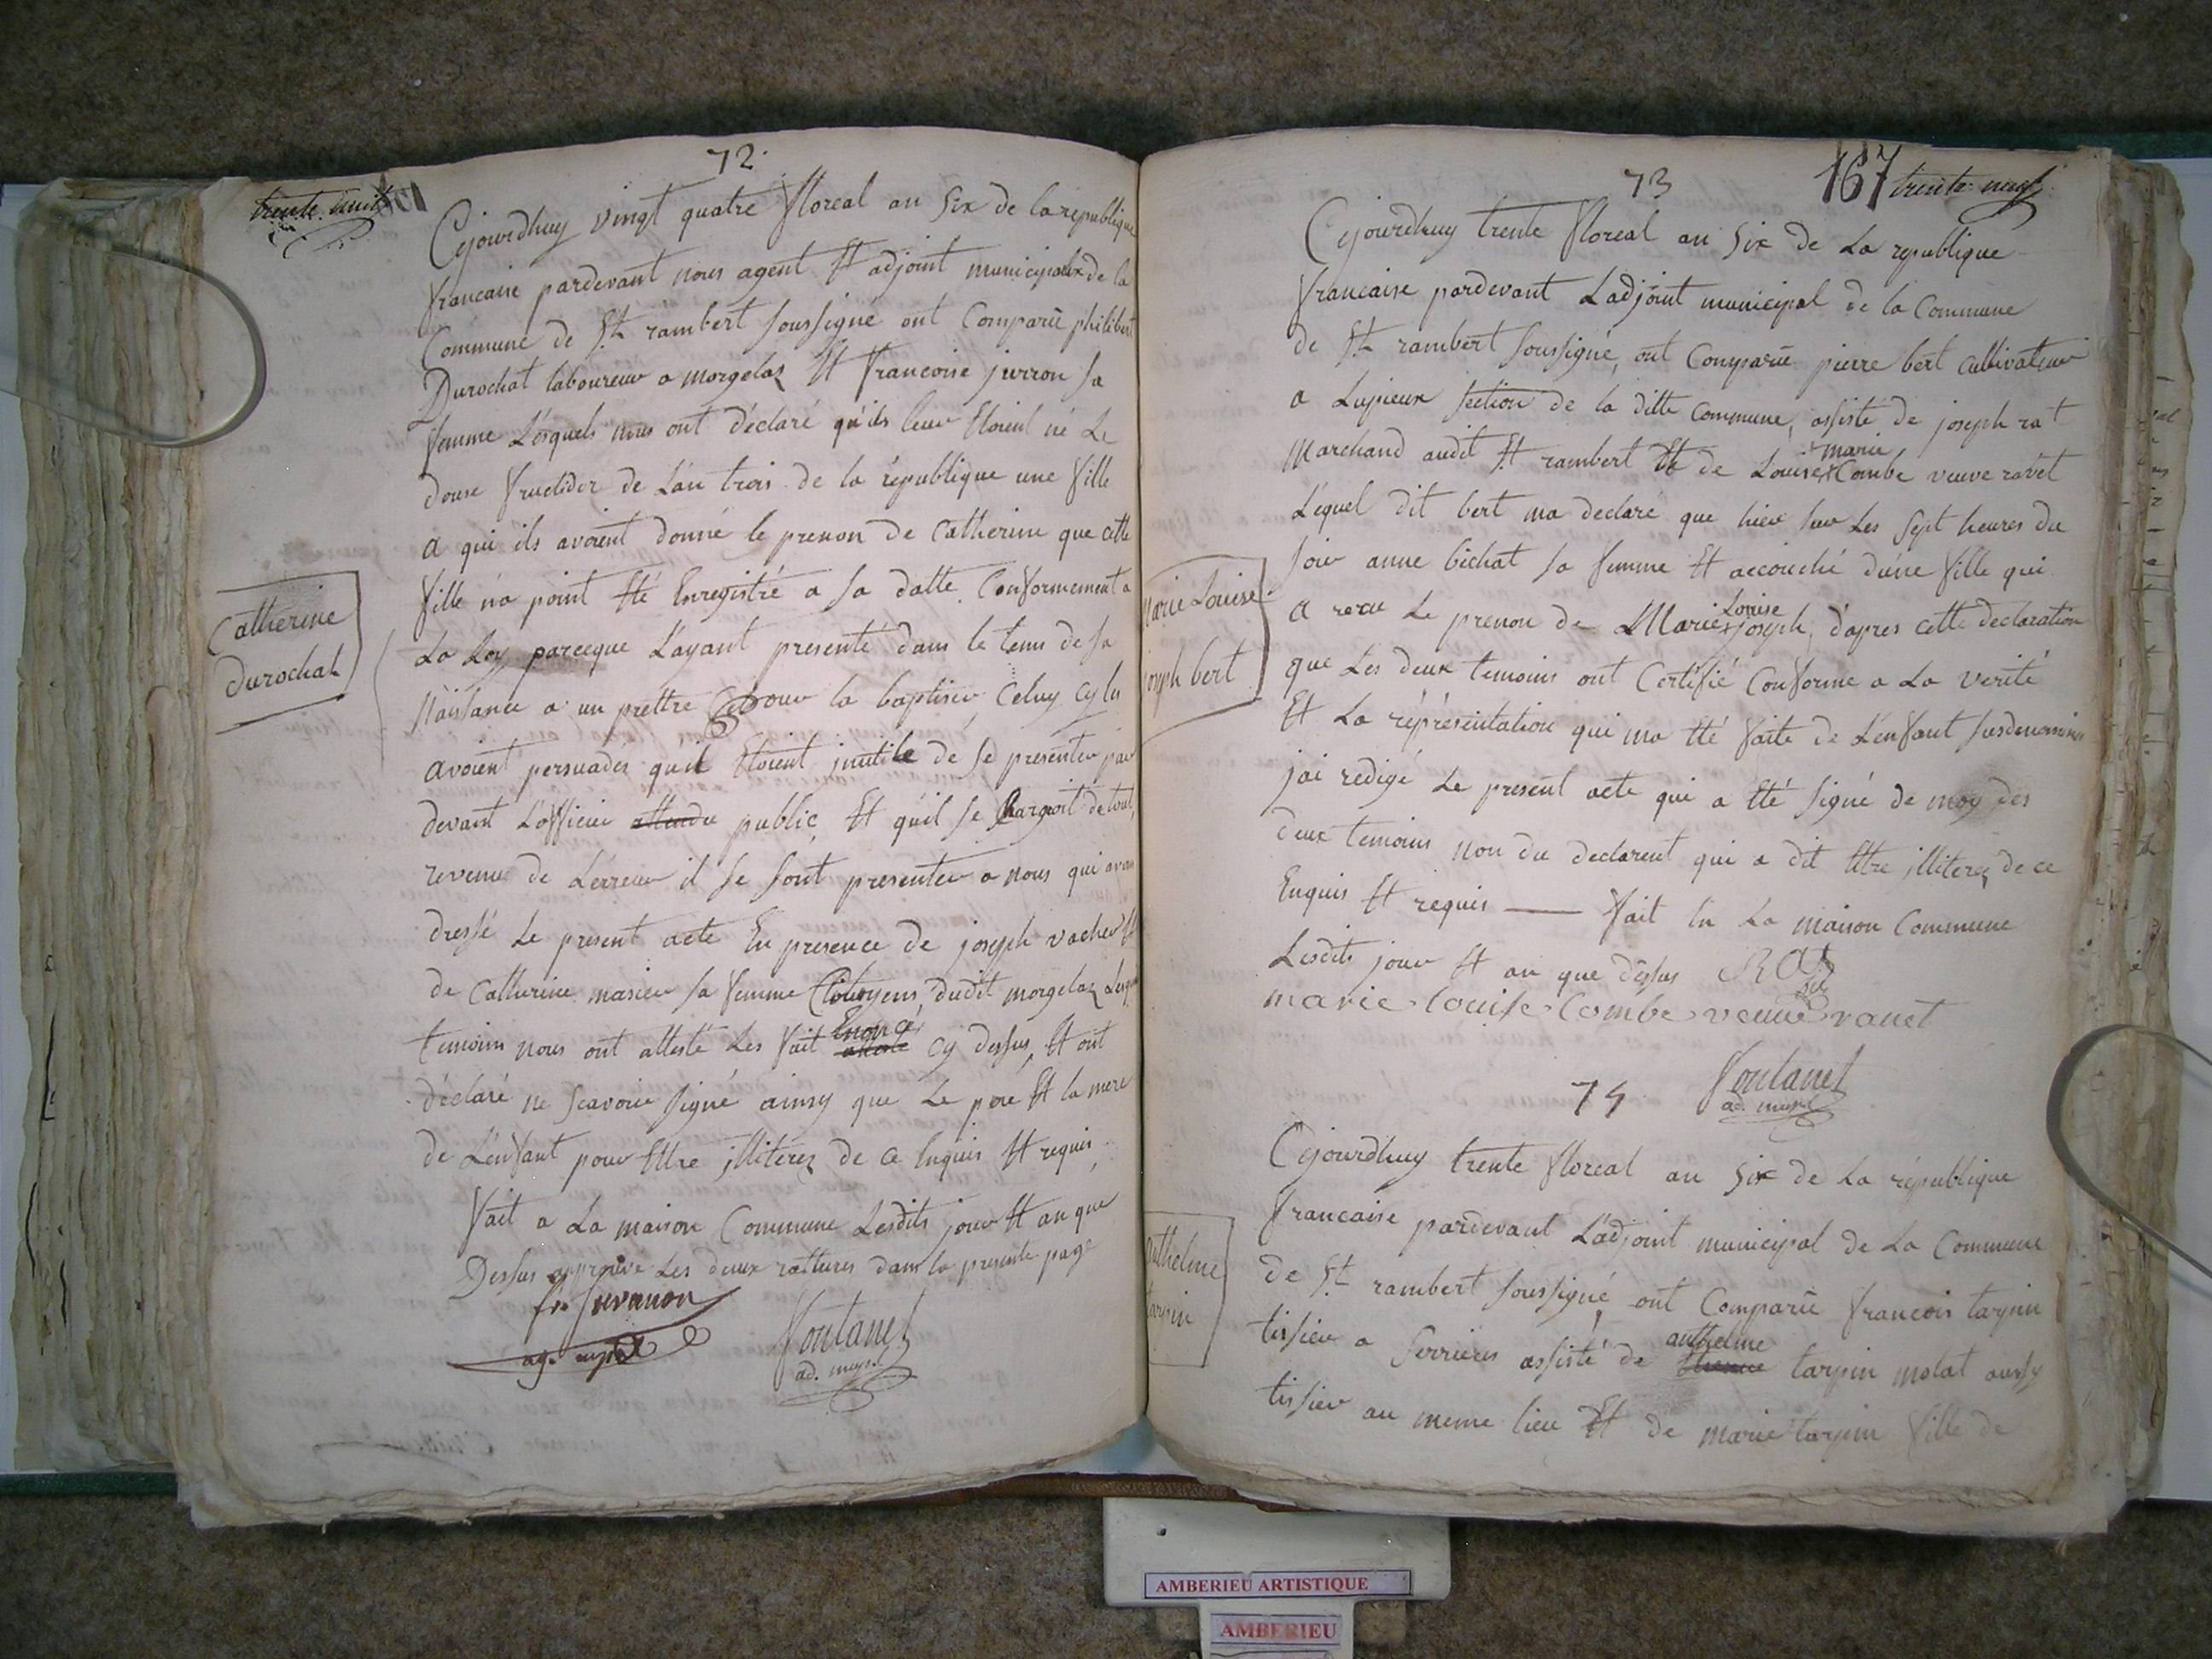 trente huit
72.
Cejourdhuy vingt quatre floreal an Six de la republique
francaise pardevant nous agent Et adjoint municipalx de la
Commune de St rambert soussigne ont Comparu philibert
Durochat laboureur a morgelaz Et francoise jurron sa
femme Lesquels nous ont déclaré qu'ils leur Etoient né Le
douse fructidor de L'an trois de la république une fille
a qui ils avoient donné le prenon de Catherine que cette
fille n'a point Eté Enregistré a sa datte Conformement a
La Loy parceque L'ayant presenté dans le tems de sa
Naissance a un prettre pour la baptiser Celuy cy les
avoient persuadés qu'il Etoient jnutile de se presenter par
devant L'officier attendu public Et qu'il se chargoit de tout,
revenu de L'erreur il se sont presenter a nous qui avons
dressé Le present acte En presence de joseph vacher Et
de Catherine masier sa femme Citoyens dudit morgelaz Lesquels
temoins nous ont attesté Les fait Enoncé attesté cy dessus Et ont
déclaré ne scavoir signé ainsy que Le pere Et la mere
de L'enfant pour Etre jlliterez de ce Enquis Et requis
fait a La maison Commune Lesdits jour Et an que
Dessus approuve Les deux rattures dans la presente page
Catherine
durochat
fs juvanon
ag. mpal
fontanel
ad. mupl
73
167 trente neuf
Cejourdhuy trente floreal an Six de La republique
francaise pardevant Ladjoint municipal de la Commune
de St rambert soussigné, ont Comparu pierre bert Cultivateur
a Lupieux section de la ditte Commune, assisté de joseph rat
Marchand audit St rambert Et de Louise marie Combe veuve ravet
Lequel dit bert ma declaré que hier sur Les Sept heures du
soir anne bichat sa femme Et accouché d'une fille qui
a recu Le prenon de Marie Louise joseph, d'apres cette declaration
que Les deux temoins ont Certifié Conforme a La verité
Et La réprésentation qui ma Eté faite de L'enfant susdenommé
jai redigé Le present acte qui a Eté signé de moy des
deux temoins non du declarent qui a dit Etre jlliterez de ce
Enquis Et requis —— fait En La maison Commune
Lesdits jour Et an que dessus RAt
marie louise Combe veuve ravet
Marie Louise
joseph bert
fontanel
ad. mupl
74
Cejourdhuy trente floreal an Six de La république
francaise pardevant L'adjoint municipal de La Commune
de St rambert soussigné ont Comparu francois tarpin
tissier a Serrieres assisté de anthelme tarpin molat aussy
tissier au meme lieu Et de marie tarpin fille de
anthelme
tarpin
AMBERIEU ARTISTIQUE
AMBERIEU